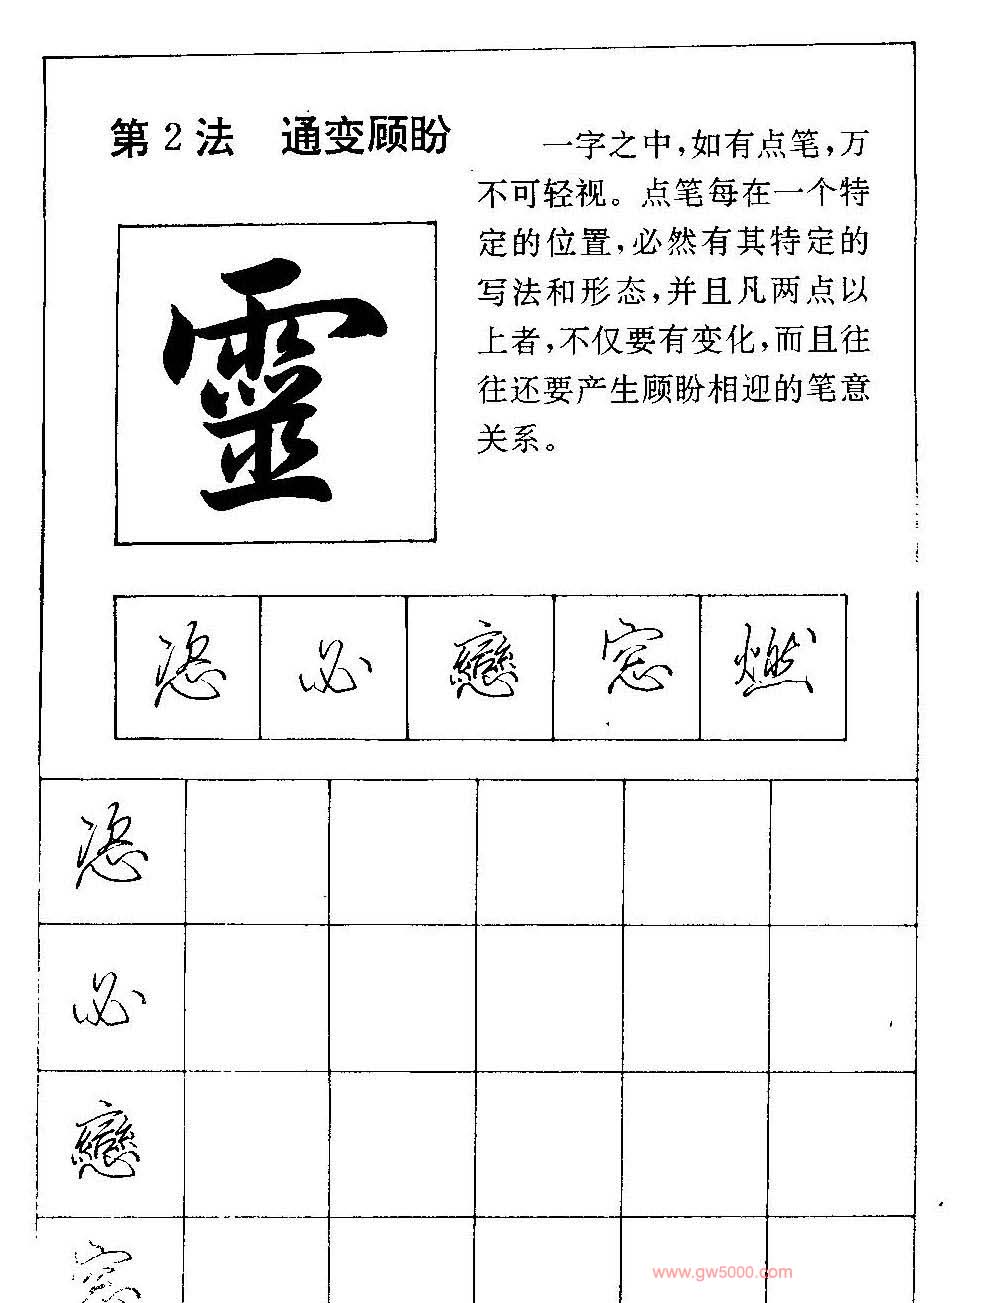 第2法 通变顾盼
一字之中，如有点笔，万
不可轻视。点笔每在一个特
定的位置，必然有其特定的
写法和形态，并且凡两点以
上者，不仅要有变化，而且往
往还要产生顾盼相迎的笔意
关系。
靈
恣 必 戀 窓 燃
恣
必
戀
窓
www.gw5000.com